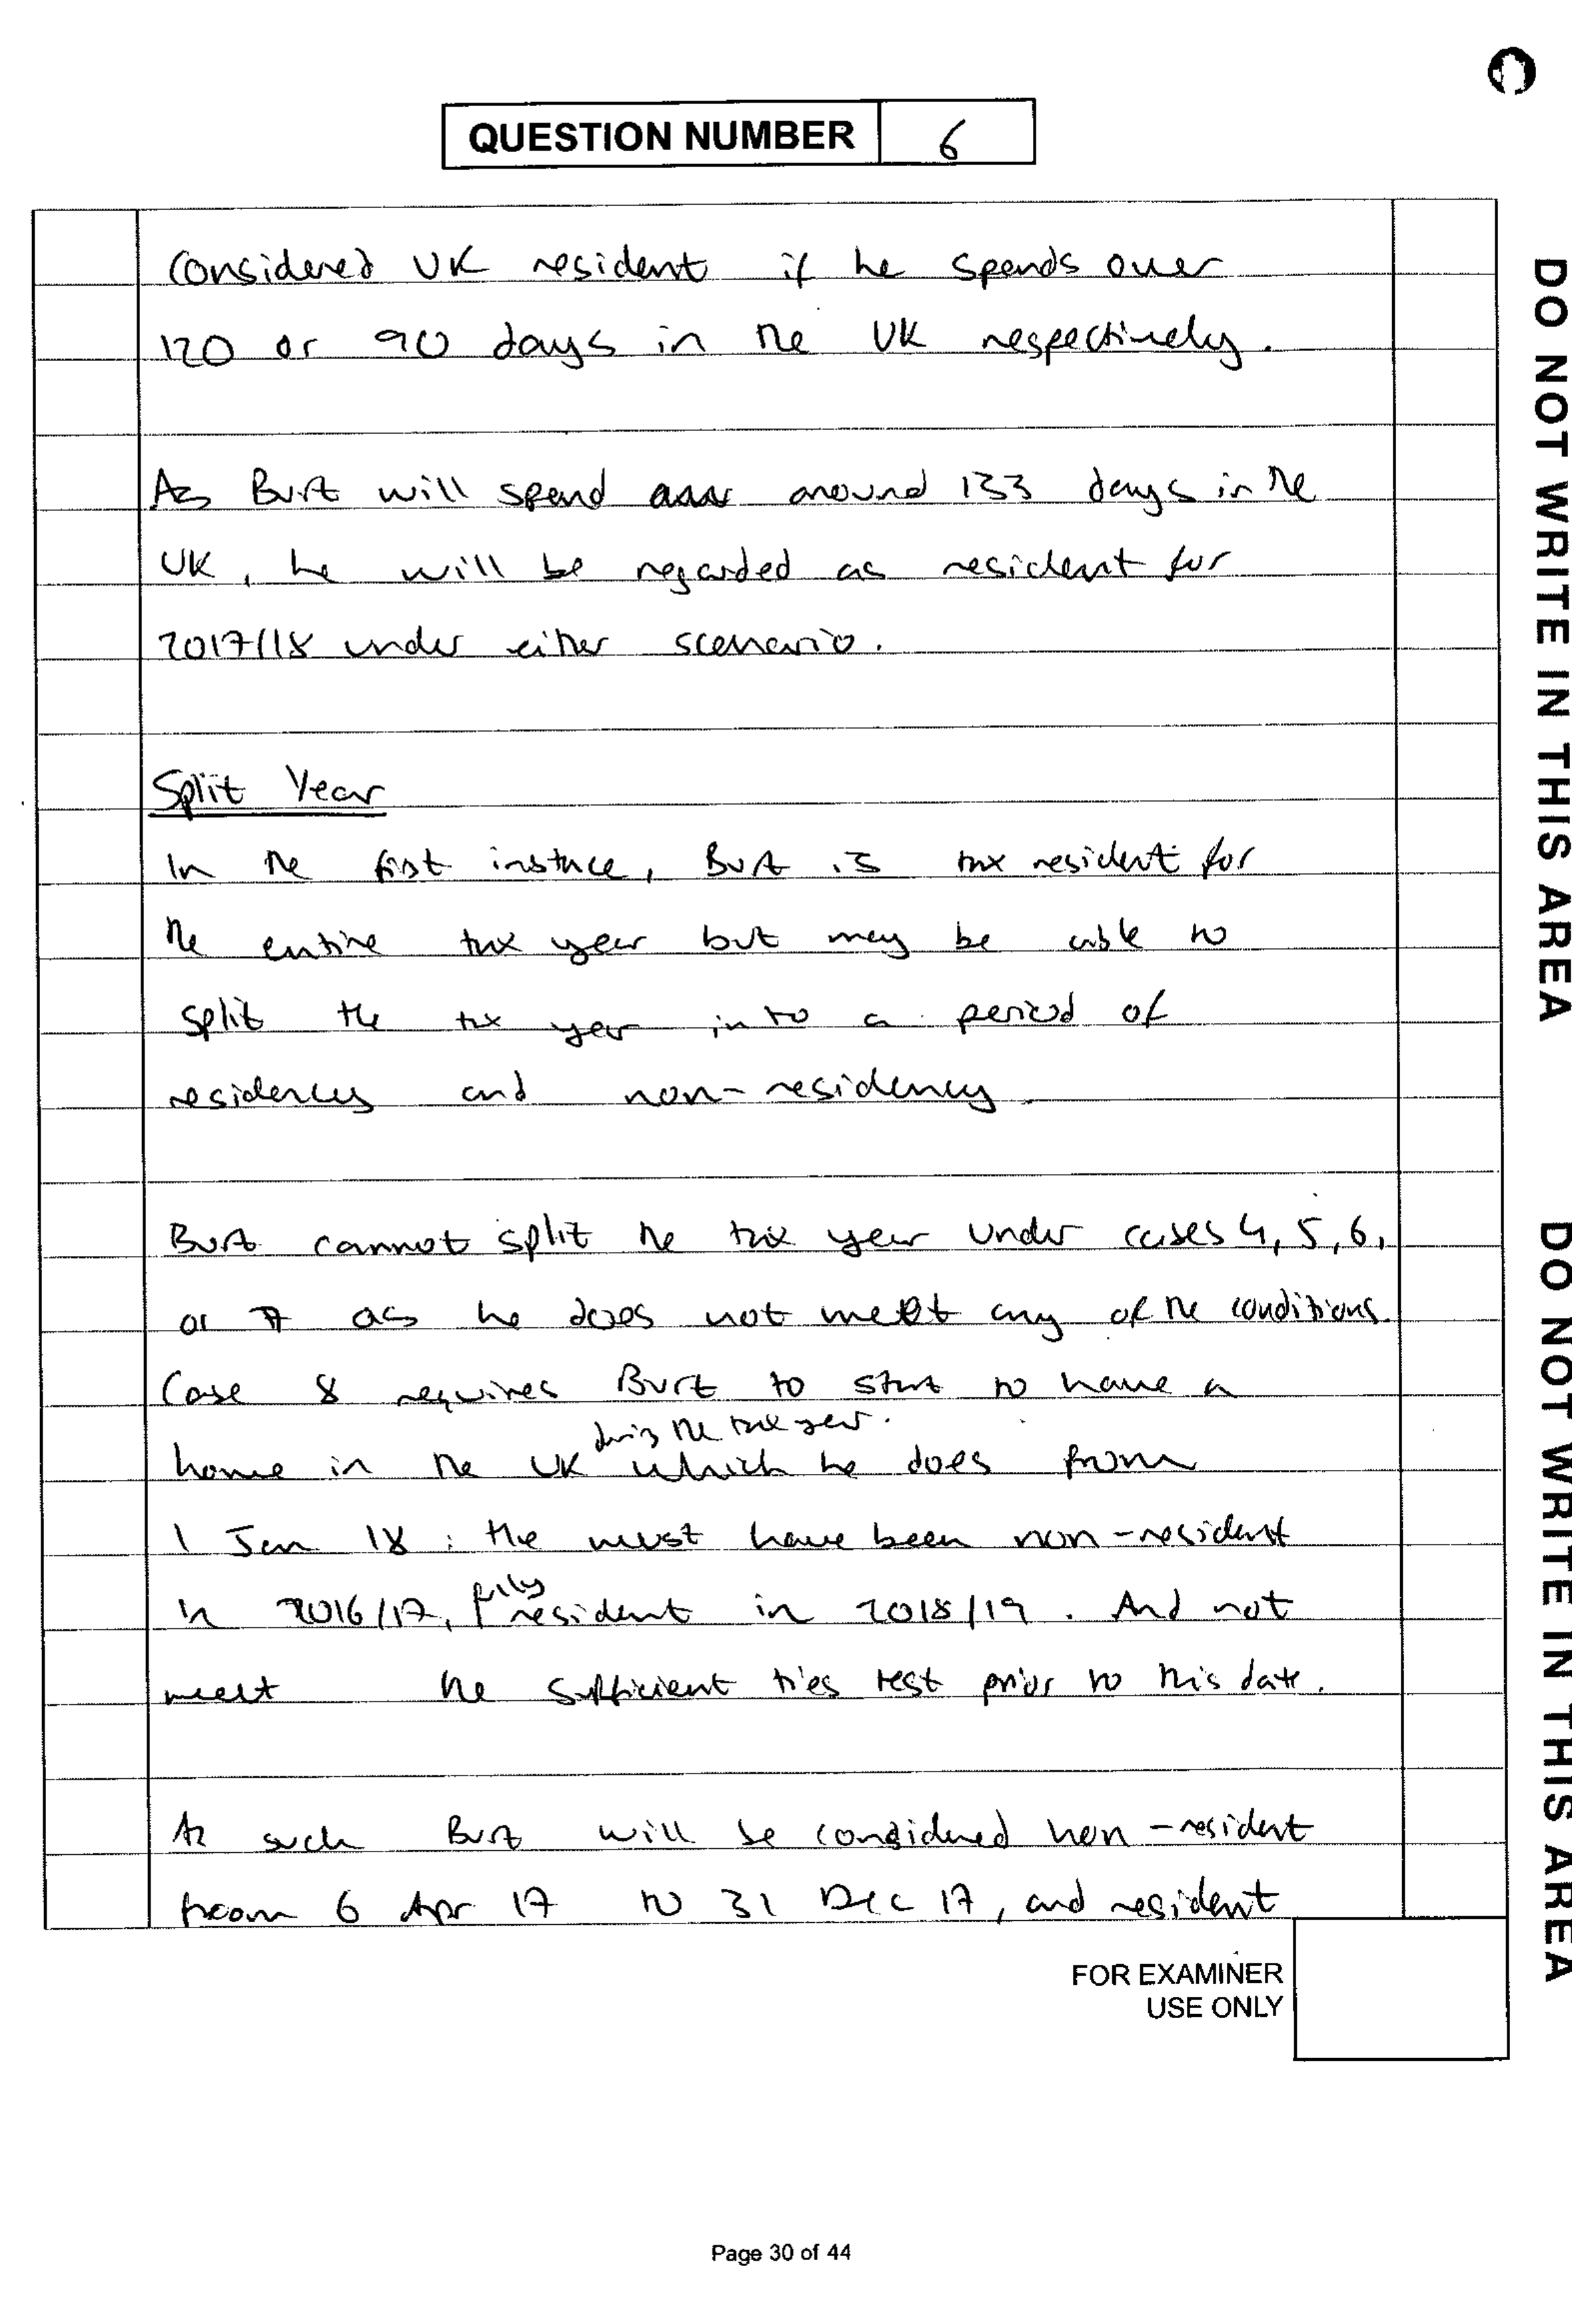 QUESTION NUMBER 6
Considered UK resident if he spends over
120 or 90 days in the UK respectively.
As Burt will spend around 133 days in the
UK, he will be regarded as resident for
2017/18 under either scenario.
Split Year
In the first instnce, Burt is tax resident for
the entire tax year but may be able to
split the tax year into a period of
residency and non-residency.
Burt cannot split the tax year under cases 4, 5, 6,
or 7 as he does not meet any of the conditions.
Case 8 requires Burt to start to have a
during the tax year.
home in the UK which he does from
1 Jan 18; the must have been non-resident
fully
in 2016/17, resident in 2018/19. And not
meet the sufficient ties test prior to this date.
As such Burt will be considered non-resident
from 6 Apr 17 to 31 Dec 17, and resident
FOR EXAMINER
USE ONLY
Page 30 of 44
DO NOT WRITE IN THIS AREA
DO NOT WRITE IN THIS AREA